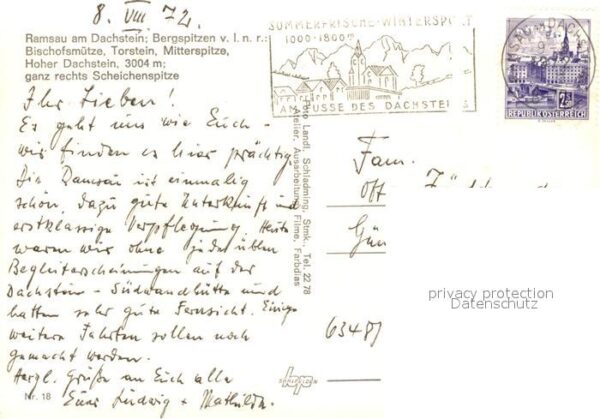 8. VIII 72.
Ramsau am Dachstein; Bergspitzen v. l. n. r.:
Bischofsmütze, Torstein, Mitterspitze,
Hoher Dachstein, 3004 m;
ganz rechts Scheichenspitze
Ihr Lieben!
Es geht uns wie Euch -
wir finden es hier prächtig.
Die Ramsau ist einmalig
schön, dazu gute Unterkunft und
erstklassige Verpflegung. Heute
waren wir ohne jeden üblen
Begleiterscheinungen auf der
Dachstein - Südwandhütte und
hatten sehr gute Fernsicht. Einige
weitere Fahrten sollen noch
gemacht werden.
Herzl. Grüße an Euch alle
Eure Ludwig + Mathilde.
Nr. 18
Foto Landl, Schladming, Stmk., Tel. 22 78
Atelier, Ausarbeitung, Filme, Farbdias
SOMMERFRISCHE-WINTERSPORT
1000-1800m
AM FUSSE DES DACHSTEINS
REPUBLIK ÖSTERREICH
Fam.
634 81
privacy protection
Datenschutz